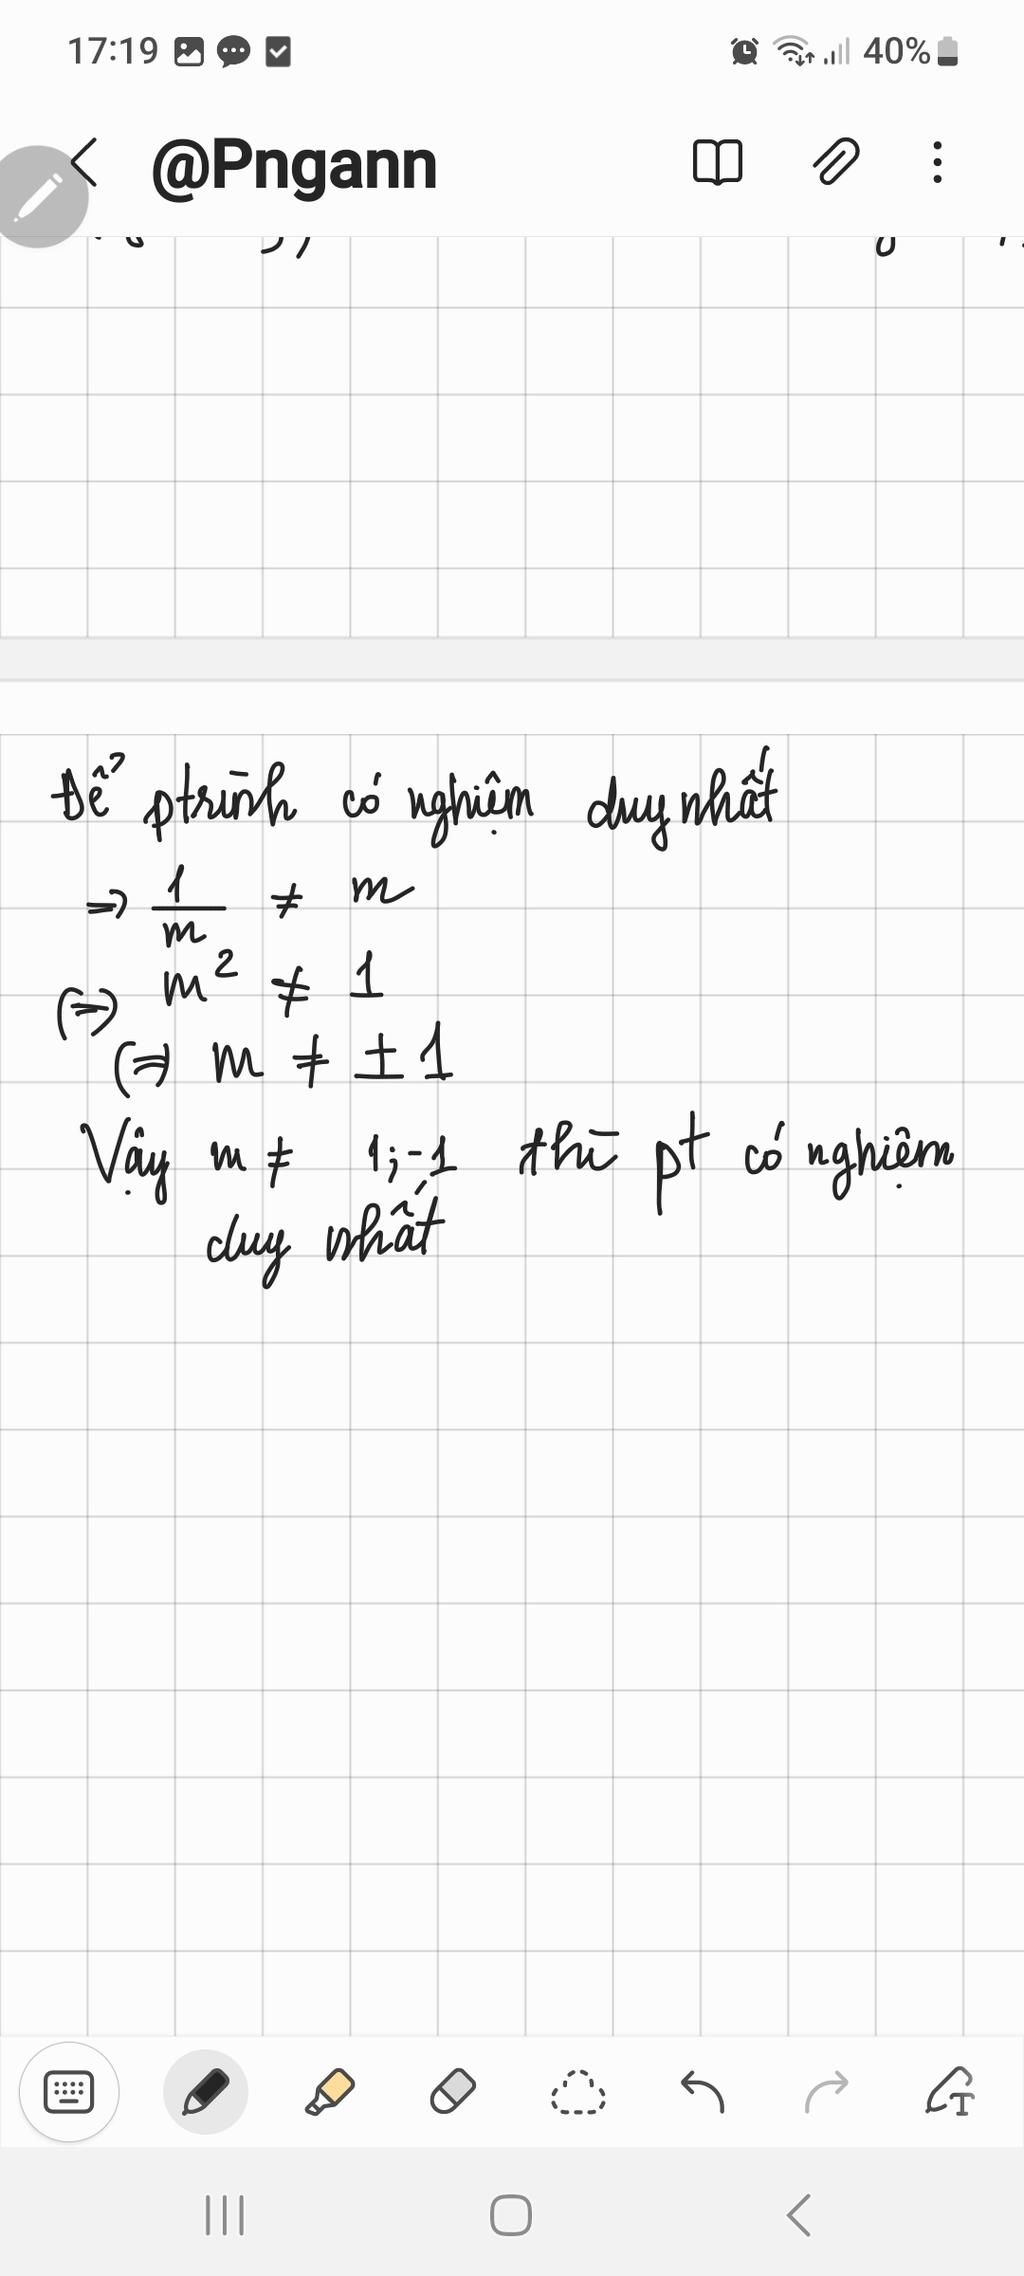 17:19 40%
@Pngann
Để ptrình có nghiệm duy nhất
=> 1/m ≠ m
(=>) m² ≠ 1
(=>) m ≠ ±1
Vậy m ≠ 1;-1 thì pt có nghiệm
duy nhất
T